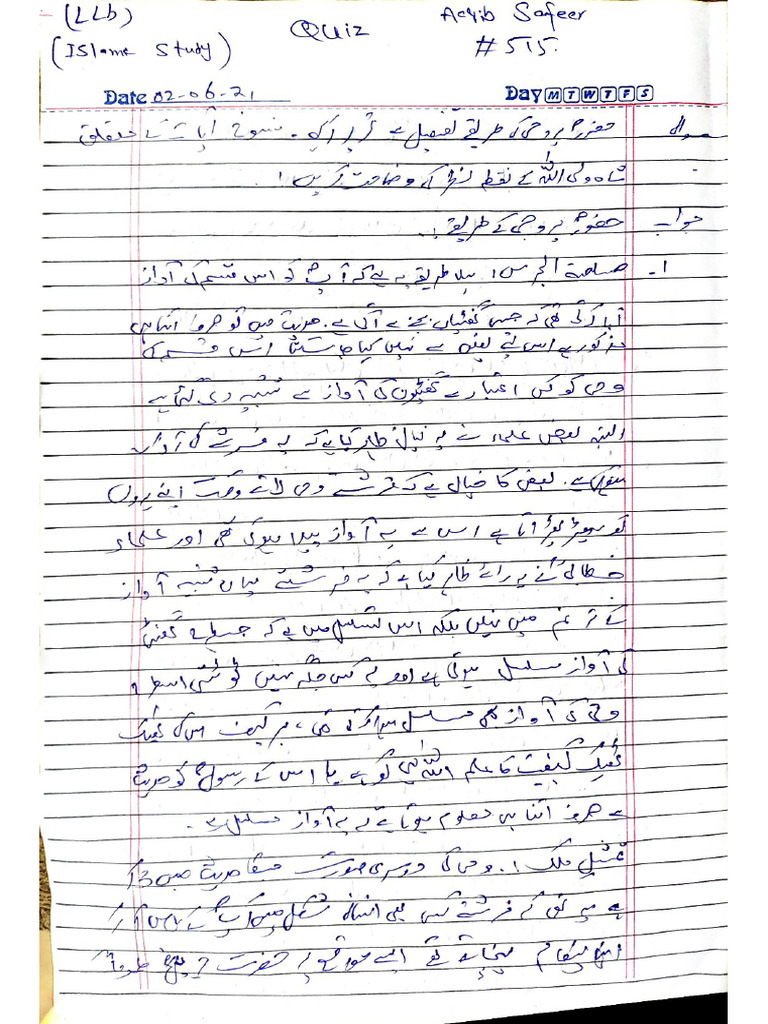 (LLb) Quiz Aqib Safeer
(ISlamc Study) # 515.
Date 02-06-21 Day M T W T F S
سوال حضورؐ پر وحی کے طریقے تفصیل سے تحریر کریں۔ منسوخ آیات کے متعلق
شاہ ولی اللہؒ کے نقطہ نظر کی وضاحت کریں!
جواب حضورؐ پر وحی کے طریقے!۔
1۔ صلصلة الجرس! پہلا طریقہ یہ ہے کہ آپؐ کو اس قسم کی آواز
آیا کرتی تھی کہ جیسی گھنٹیاں بجنے سے آتی ہے۔ حدیث میں تو صرف اتنا ہی
مذکور ہے اس لئے یقین سے نہیں کہا جا سکتا اس قسم کی
وحی کو کس اعتبار سے گھنٹیوں کی آواز سے تشبیہ دی گئی ہے
البتہ بعض علماء نے یہ خیال ظاہر کیا ہے کہ یہ فرشتے کی آواز
ہوتی ہے۔ بعض کا خیال ہے کہ فرشتے وحی لاتے وقت اپنے پروں
کو آتا ہے اس سے یہ آواز پیدا ہوتی تھی اور علماء
خطابیؒ نے یہ رائے ظاہر کیا ہے کہ یہ یہاں تشبیہ آواز
کے ترنم میں نہیں بلکہ اس تسلسل میں ہے کہ جسطرح گھنٹی
کی آواز مسلسل ہوتی ہے اور کسی جگہ نہیں ٹوٹتی اسطرح
وحی کی آواز بھی مسلسل ہوا کرتی تھی، بہر کیف اس کی ٹھیک
ٹھیک کیفیت کا علم اللہ ہی کو ہے یا اس کے رسولؐ کو حدیث
سے صرف اتنا ہی معلوم ہوتا ہے کہ یہ آواز مسلسل ہے۔
تمثیل ملک!۔ وحی کی دوسری صورت حدیث میں
ہے یہ تھی کہ فرشتے کسی بھی انسانی شکل میں آپؐ کے پاس آ کر
پیغام پہنچاتے تھے ایسے موقع پر حضرت